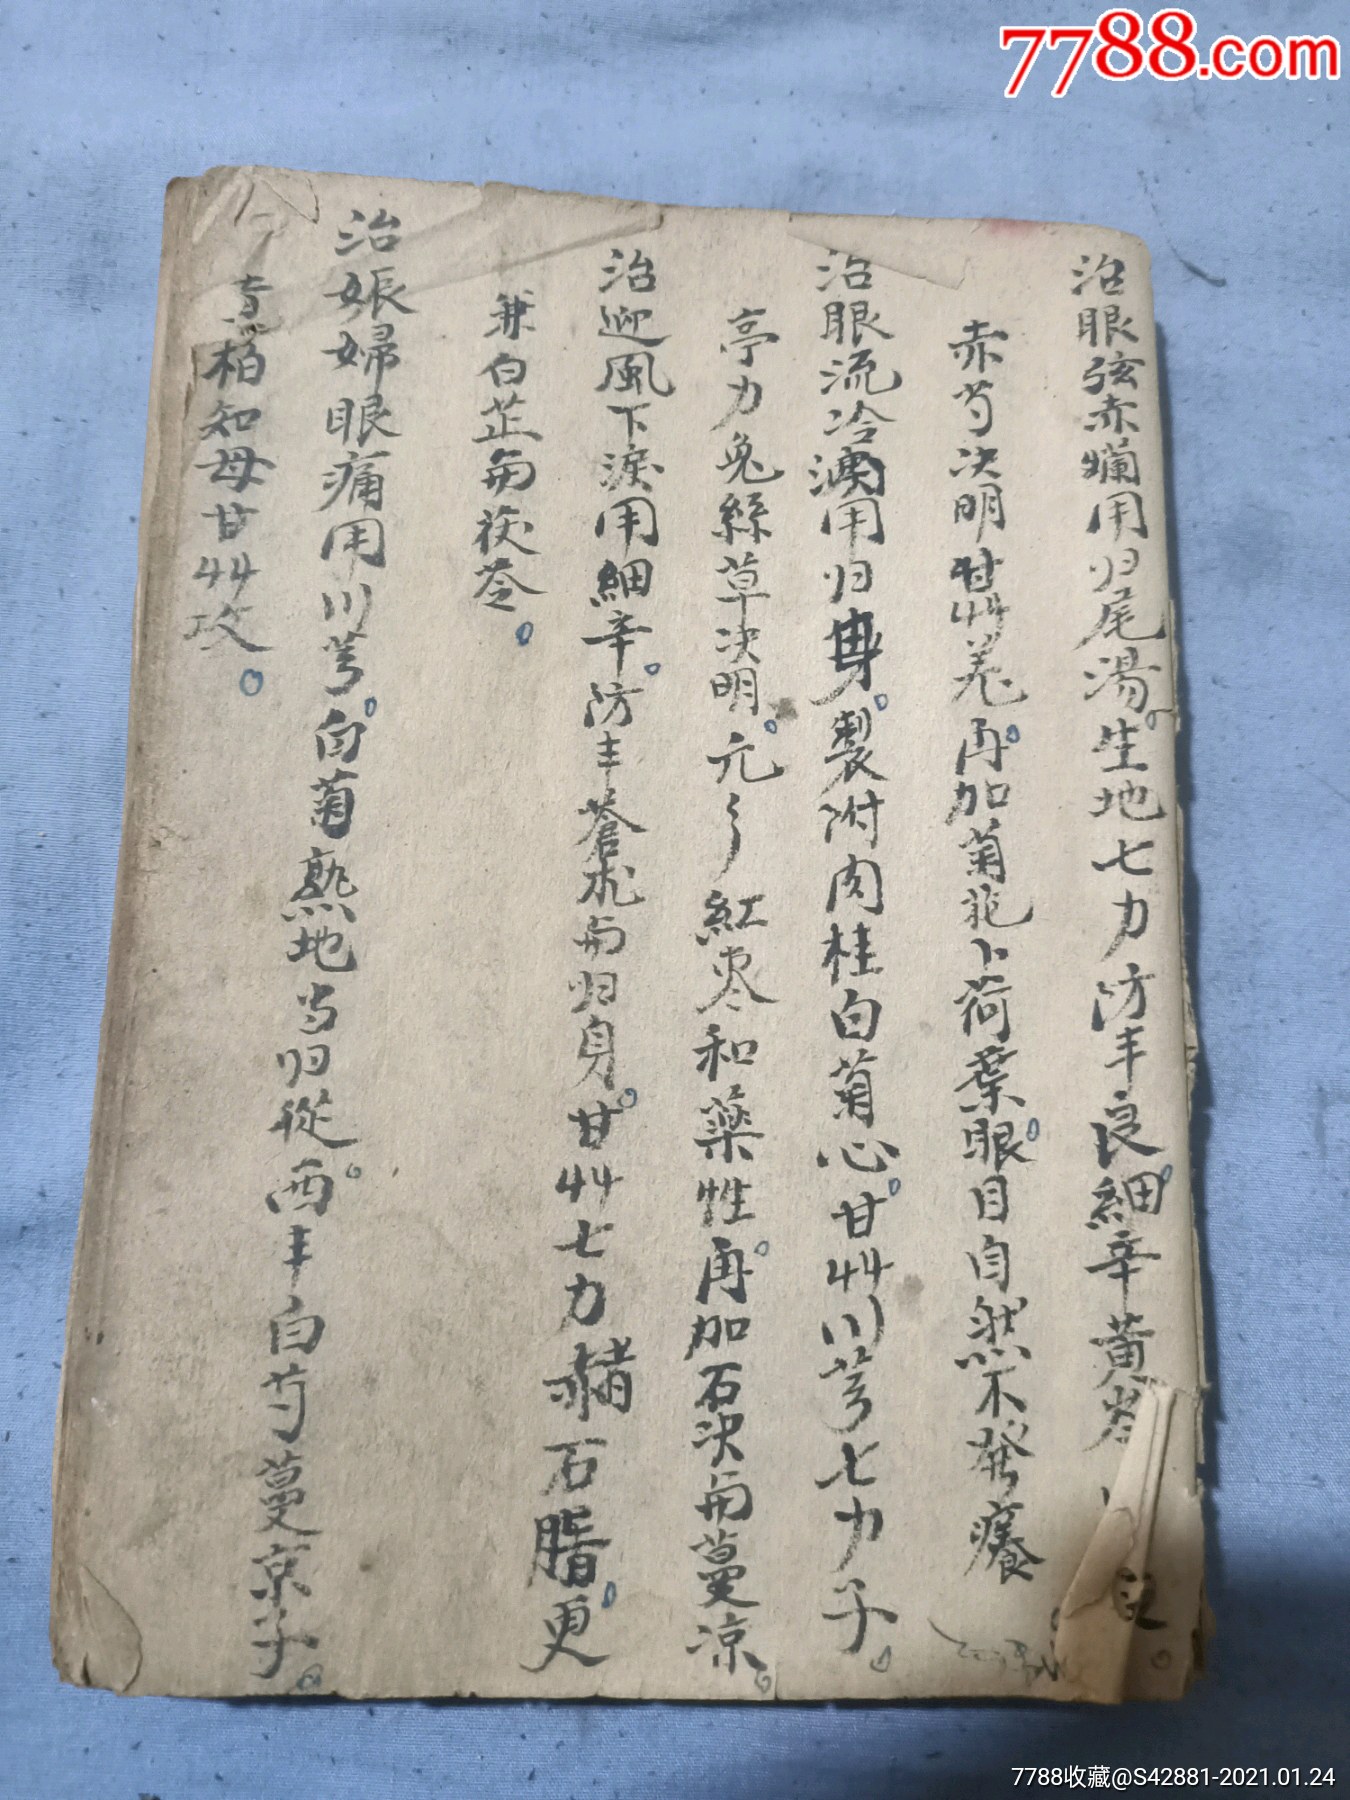 7788.com
治眼弦赤爛用归尾湯生地七力防丰良細辛黄
赤芍决明甘艸羌再加菊花卜荷葉眼目自然不發癢
治眼流冷淚用归身製附肉桂白菊心甘艸川芎七力子
亭力兔絲草决明元彡紅枣和藥性再加石决与蔓凉
治迎風下淚用細辛防丰蒼术与归身甘艸七力赤石脂更
兼白芷与茯苓
治娠婦眼痛用川芎白菊熟地当归從西丰白芍蔓京子
黄柏知母甘艸攻
7788收藏@S42881-2021.01.24